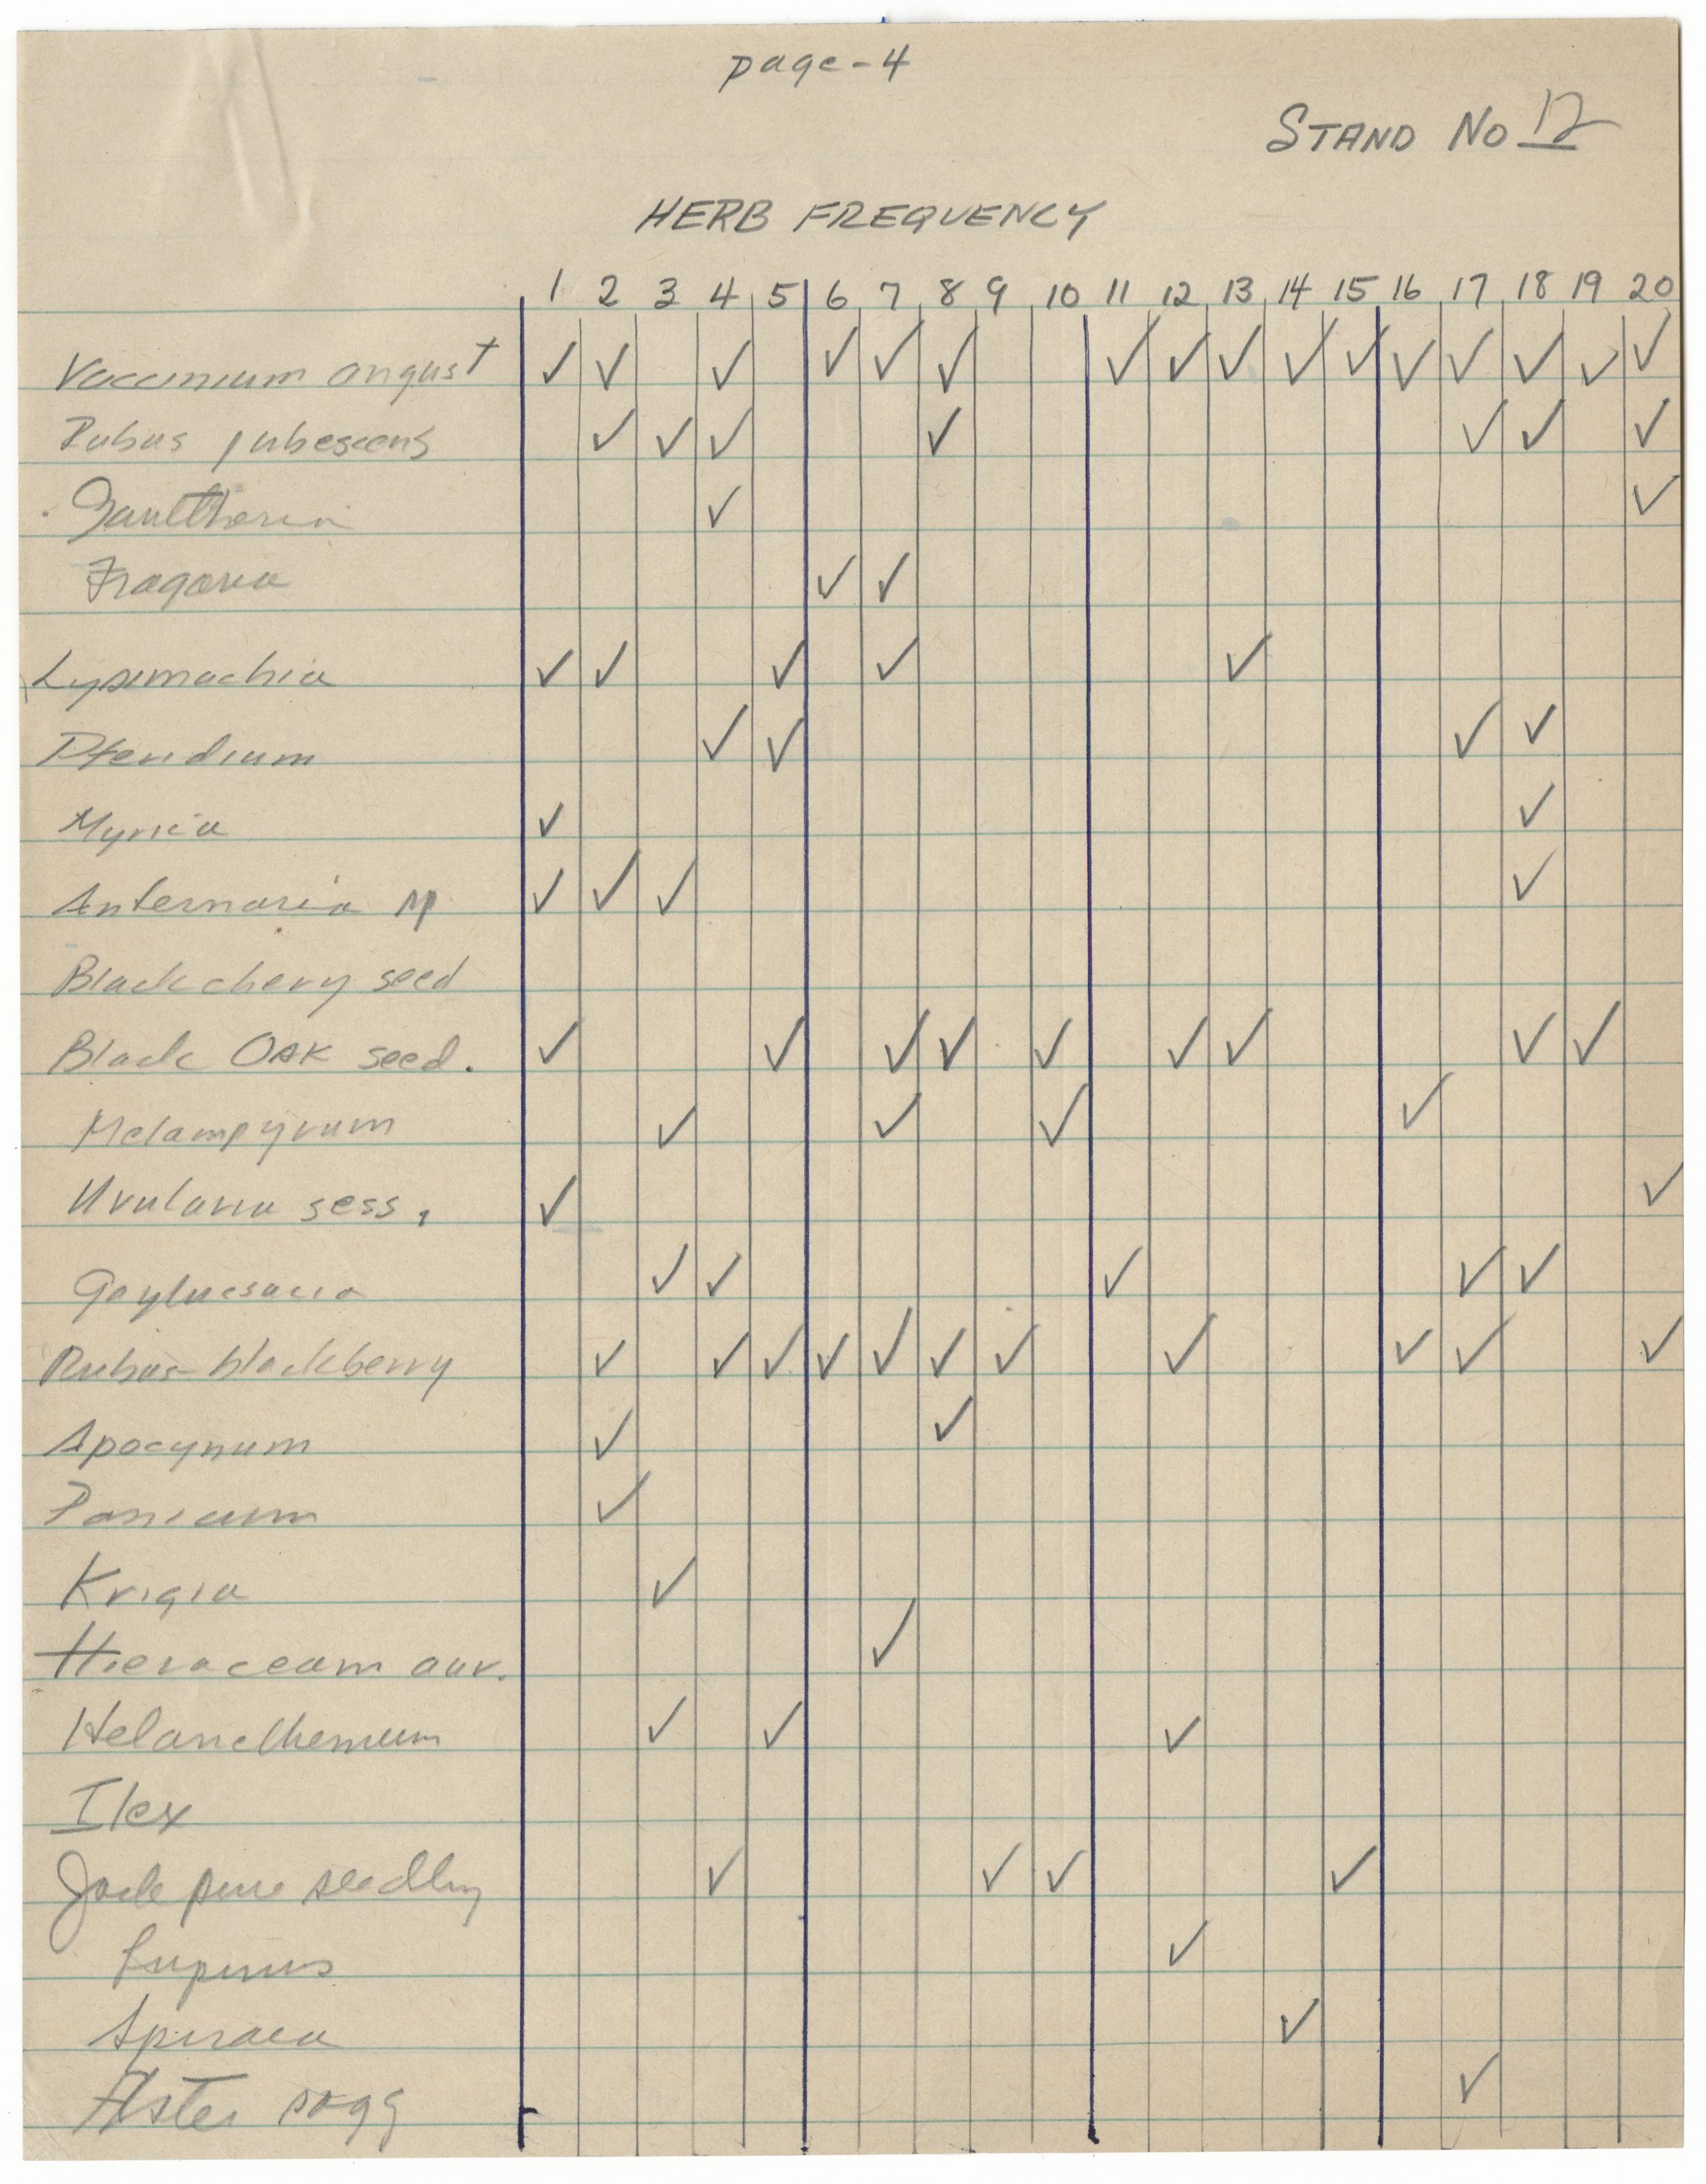 page-4
STAND NO 12
HERB FREQUENCY
1 2 3 4 5 6 7 8 9 10 11 12 13 14 15 16 17 18 19 20
Vaccinium angust ✓ ✓ ✓ ✓ ✓ ✓ ✓ ✓ ✓ ✓ ✓ ✓ ✓ ✓ ✓ ✓
Rubus pubescens ✓ ✓ ✓ ✓ ✓ ✓ ✓
Gaultheria ✓ ✓
Fragaria ✓ ✓
Lysimachia ✓ ✓ ✓ ✓ ✓
Pteridium ✓ ✓ ✓ ✓
Myrica ✓ ✓
Anternaria sp ✓ ✓ ✓ ✓
Black chery seed
Black OAK seed. ✓ ✓ ✓ ✓ ✓ ✓ ✓ ✓ ✓
Melampyrum ✓ ✓ ✓ ✓
Uvularia sess. ✓ ✓
Gaylussacia ✓ ✓ ✓ ✓ ✓
Rubus-blackberry ✓ ✓ ✓ ✓ ✓ ✓ ✓ ✓ ✓ ✓ ✓
Apocynum ✓ ✓
Panicum ✓
Krigia ✓
Hieraceam aur. ✓
Helanethemum ✓ ✓ ✓
Ilex
Jack pine seedling ✓ ✓ ✓ ✓
Lupinus ✓
Spiraea ✓
Aster sagg ✓